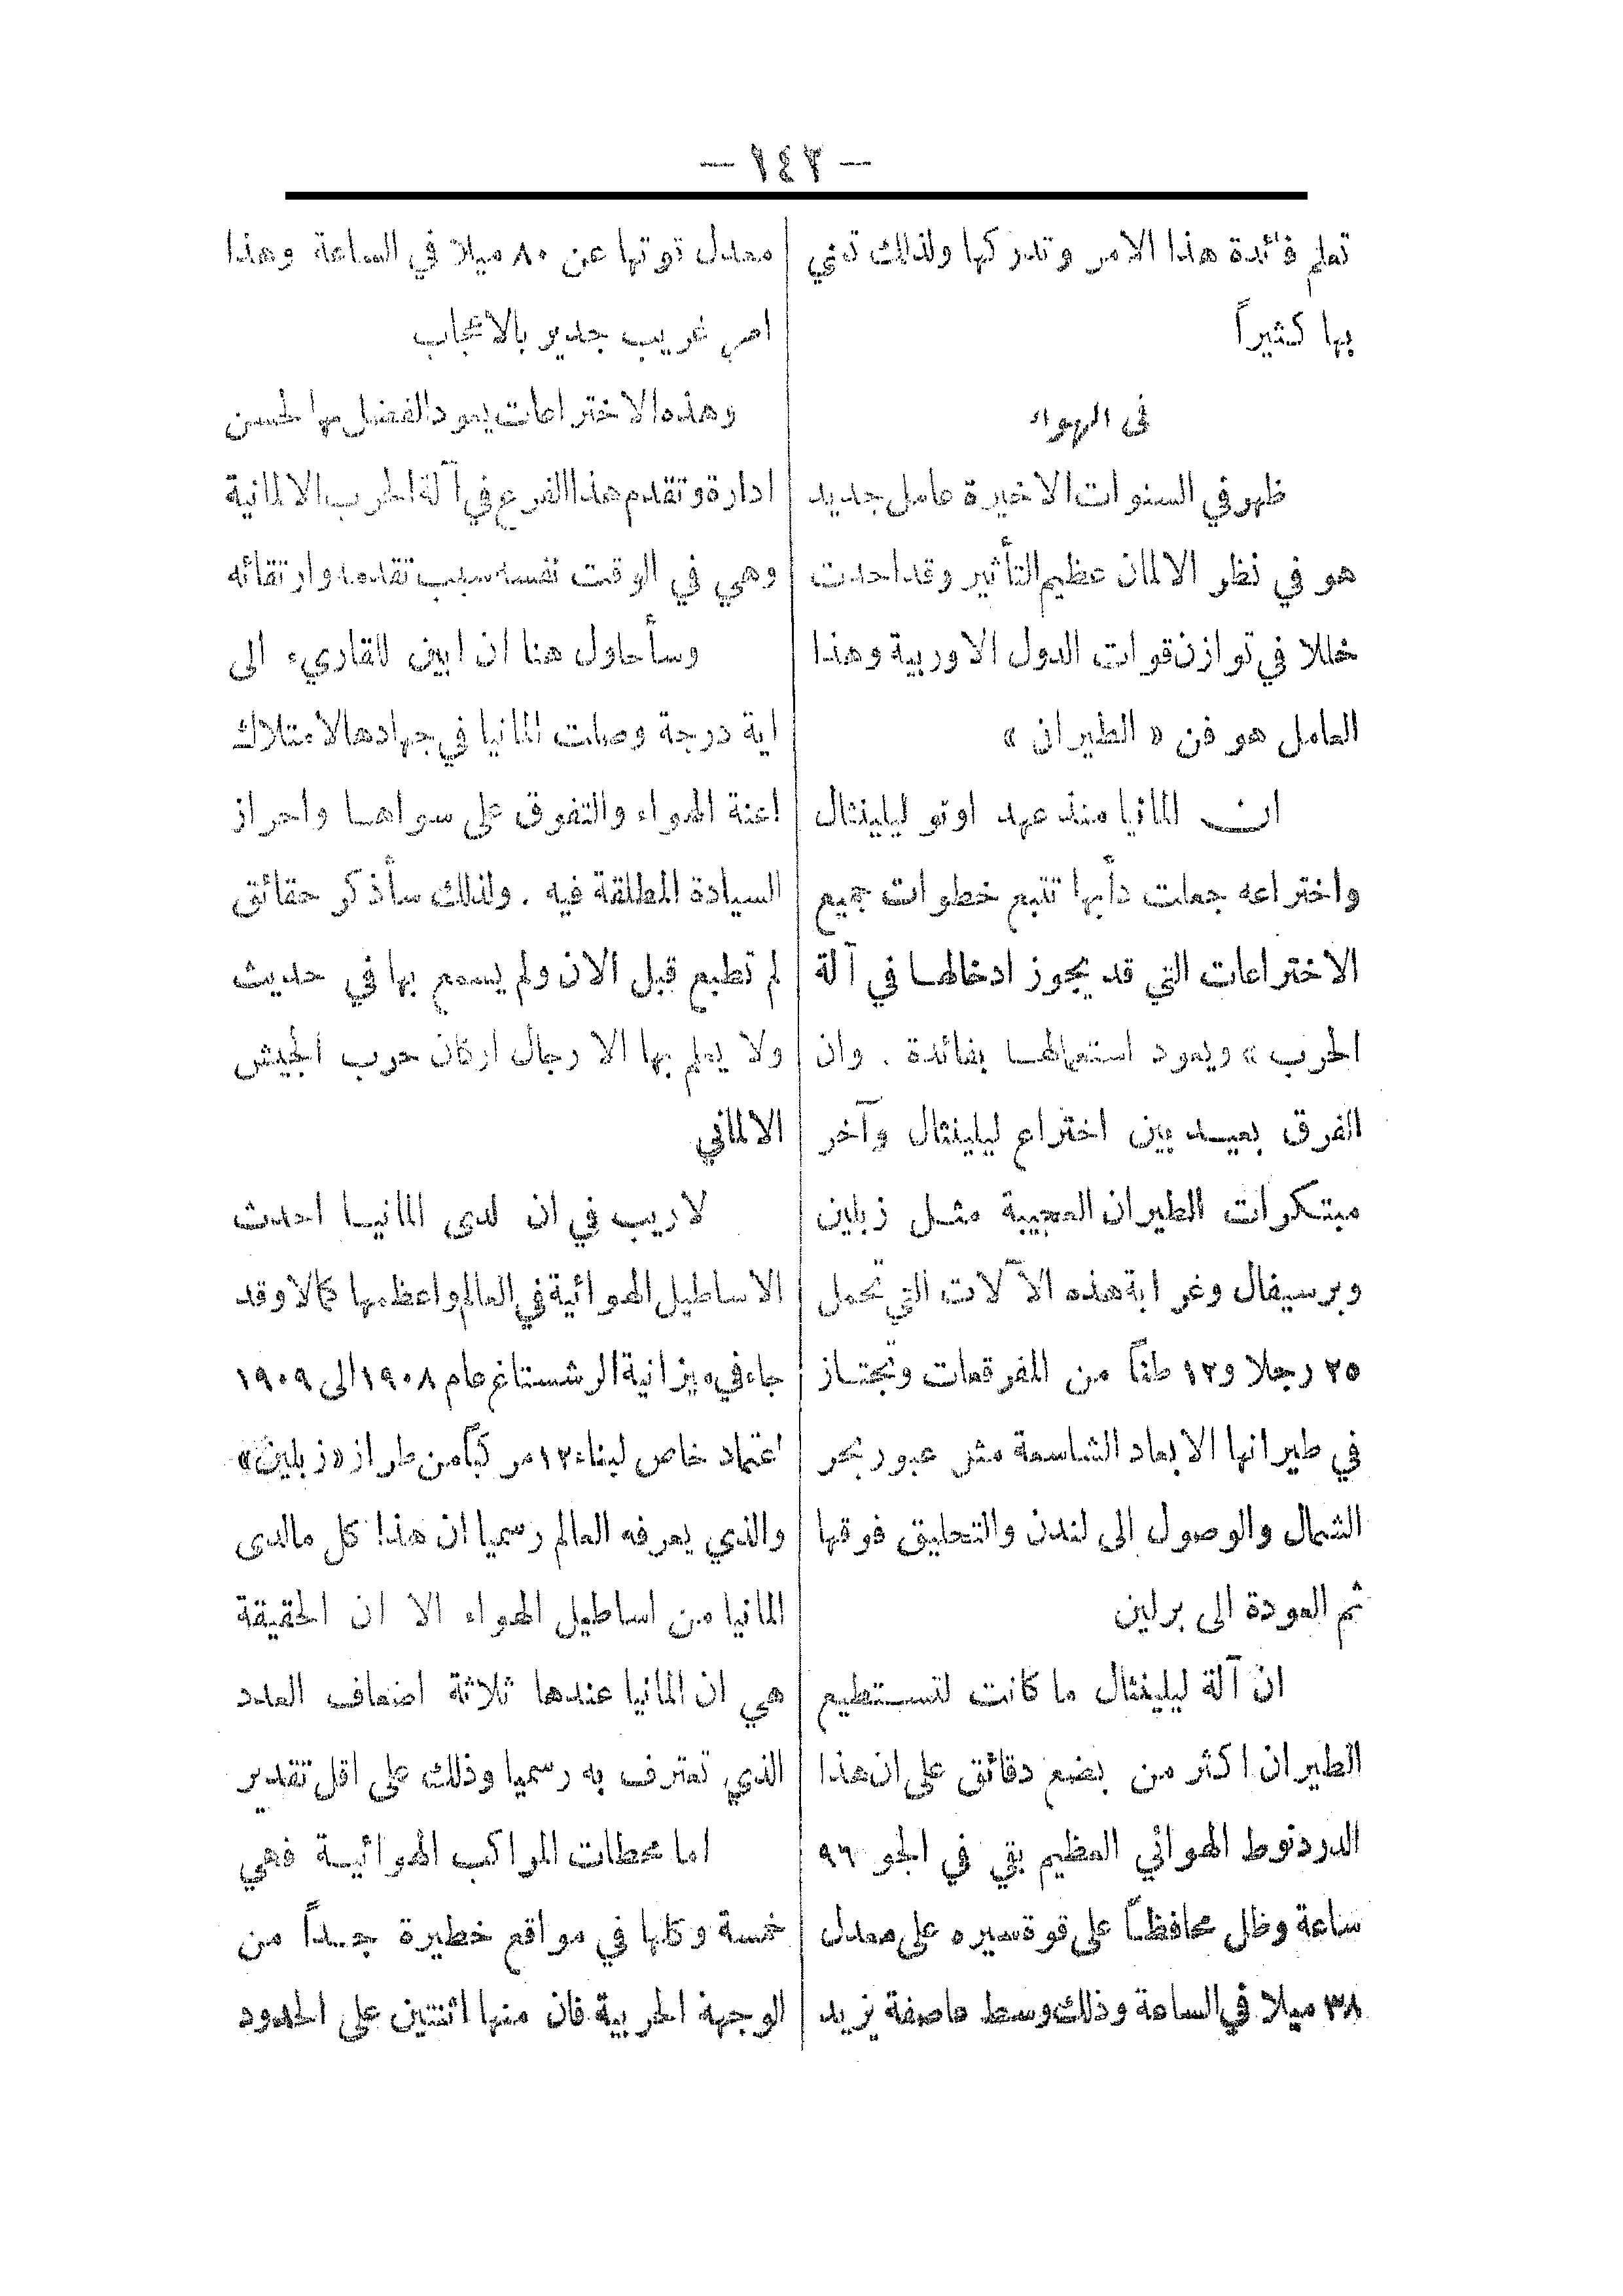 — ١٤٣ —
تعلم فائدة هذا الامر وتدركها ولذلك تعني
بها كثيراً
في الهواء
ظهر في السنوات الاخيرة عامل جديد
هو في نظر الالمان عظيم التأثير وقد احدث
خللا في توازن قوات الدول الاوربية وهذا
العامل هو فن « الطيران »
ان المانيا منذ عهد اوتو ليلينثال
واختراعه جعلت دأبها تتبع خطوات جميع
الاختراعات التي قد يجوز ادخالها في آلة
الحرب » ويعود استعمالها بفائدة . وان
الفرق بعيد بين اختراع ليلينثال وآخر
مبتكرات الطيران العجيبة مثل زبلين
وبرسيفال وغرابة هذه الآلات التي تحمل
٢٥ رجلا و١٢ طناً من المفرقعات وتجتاز
في طيرانها الابعاد الشاسعة مثل عبور بحر
الشمال والوصول الى لندن والتحليق فوقها
ثم العودة الى برلين
ان آلة ليلينثال ما كانت لتستطيع
الطيران اكثر من بضع دقائق على ان هذا
الدردنوط الهوائي العظيم بقي في الجو ٩٦
ساعة وظل محافظاً على قوة سيره على معدل
٣٨ ميلا في الساعة وذلك وسط عاصفة يزيد
معدل قوتها عن ٨٠ ميلا في الساعة وهذا
امر غريب جدير بالاعجاب
وهذه الاختراعات يعود الفضل بها لحسن
ادارة وتقدم هذا الفرع في آلة الحرب الالمانية
وهي في الوقت نفسه سبب تقدمه وارتقائه
وسأحاول هنا ان ابين للقاريء الى
اية درجة وصلت المانيا في جهادها لامتلاك
اعنة الهواء والتفوق على سواها واحراز
السيادة المطلقة فيه . ولذلك سأذكر حقائق
لم تطبع قبل الان ولم يسمع بها في حديث
ولا يعلم بها الا رجال اركان حرب الجيش
الالماني
لا ريب في ان لدى المانيا احدث
الاساطيل الهوائية في العالم واعظمها كمالا وقد
جاء في ميزانية الرشستاغ عام ١٩٠٨ الى ١٩٠٩
اعتماد خاص لبناء ١٢ مركباً من طراز «زبلين»
والذي يعرفه العالم رسميا ان هذا كل ما لدى
المانيا من اساطيل الهواء الا ان الحقيقة
هي ان المانيا عندها ثلاثة اضعاف العدد
الذي تعترف به رسميا وذلك على اقل تقدير
اما محطات المراكب الهوائية فهي
خمسة وكلها في مواقع خطيرة جداً من
الوجهة الحربية فان منها اثنتين على الحدود